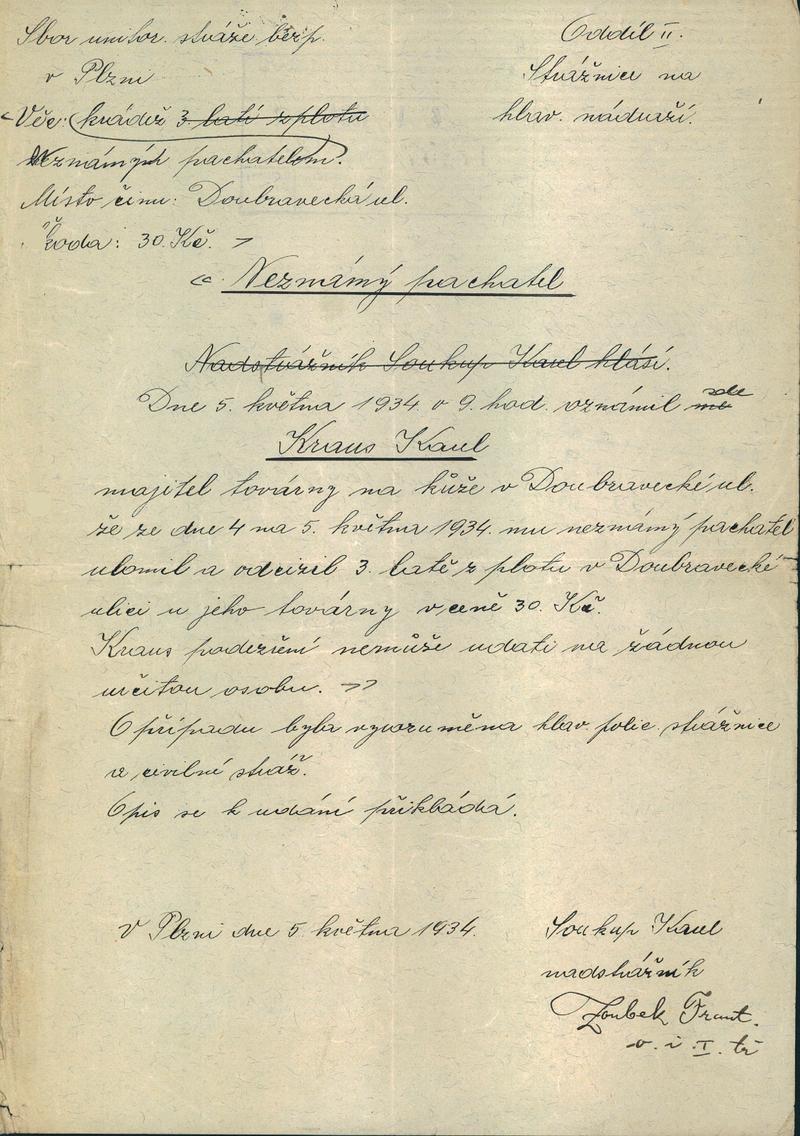 Sbor unifor. stráže bezp.
v Plzni
Oddíl II.
Strážnice na
hlav. nádraží.
Věc: krádež 3 latí z plotu
Neznámým pachatelem.
Místo činu: Doubravecká ul.
Škoda: 30 Kč.
Neznámý pachatel
Nadstrážník Soukup Karel hlásí.
Dne 5. května 1934 v 9. hod. oznámil mě zde
Kraus Karel
majitel továrny na kůže v Doubravecké ul.
že ze dne 4 na 5. května 1934. mu neznámý pachatel
ulomil a odcizil 3. latě z plotu v Doubravecké
ulici u jeho továrny v ceně 30. Kč.
Kraus podezření nemůže udati na žádnou
určitou osobu.
O případu byla vyrozuměna hlav. polic. strážnice
a civilní stráž.
Opis se k udání přikládá.
V Plzni dne 5 května 1934.
Soukup Karel
nadstrážník
Zoubek Frant.
v. i. I. tř